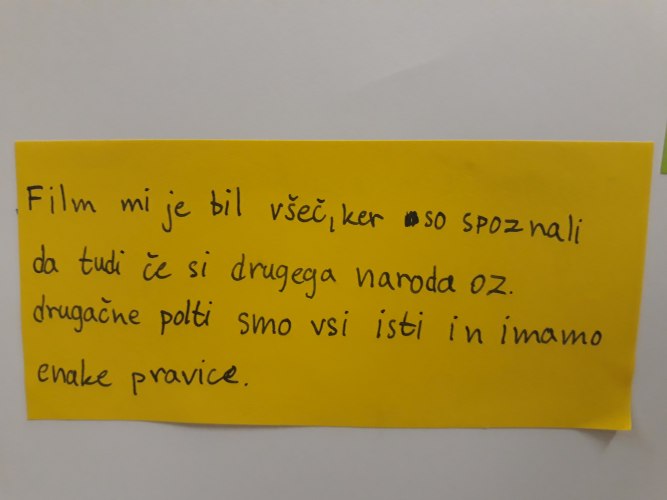 Film mi je bil všeč, ker so spoznali
da tudi če si drugega naroda oz.
drugačne polti smo vsi isti in imamo
enake pravice.